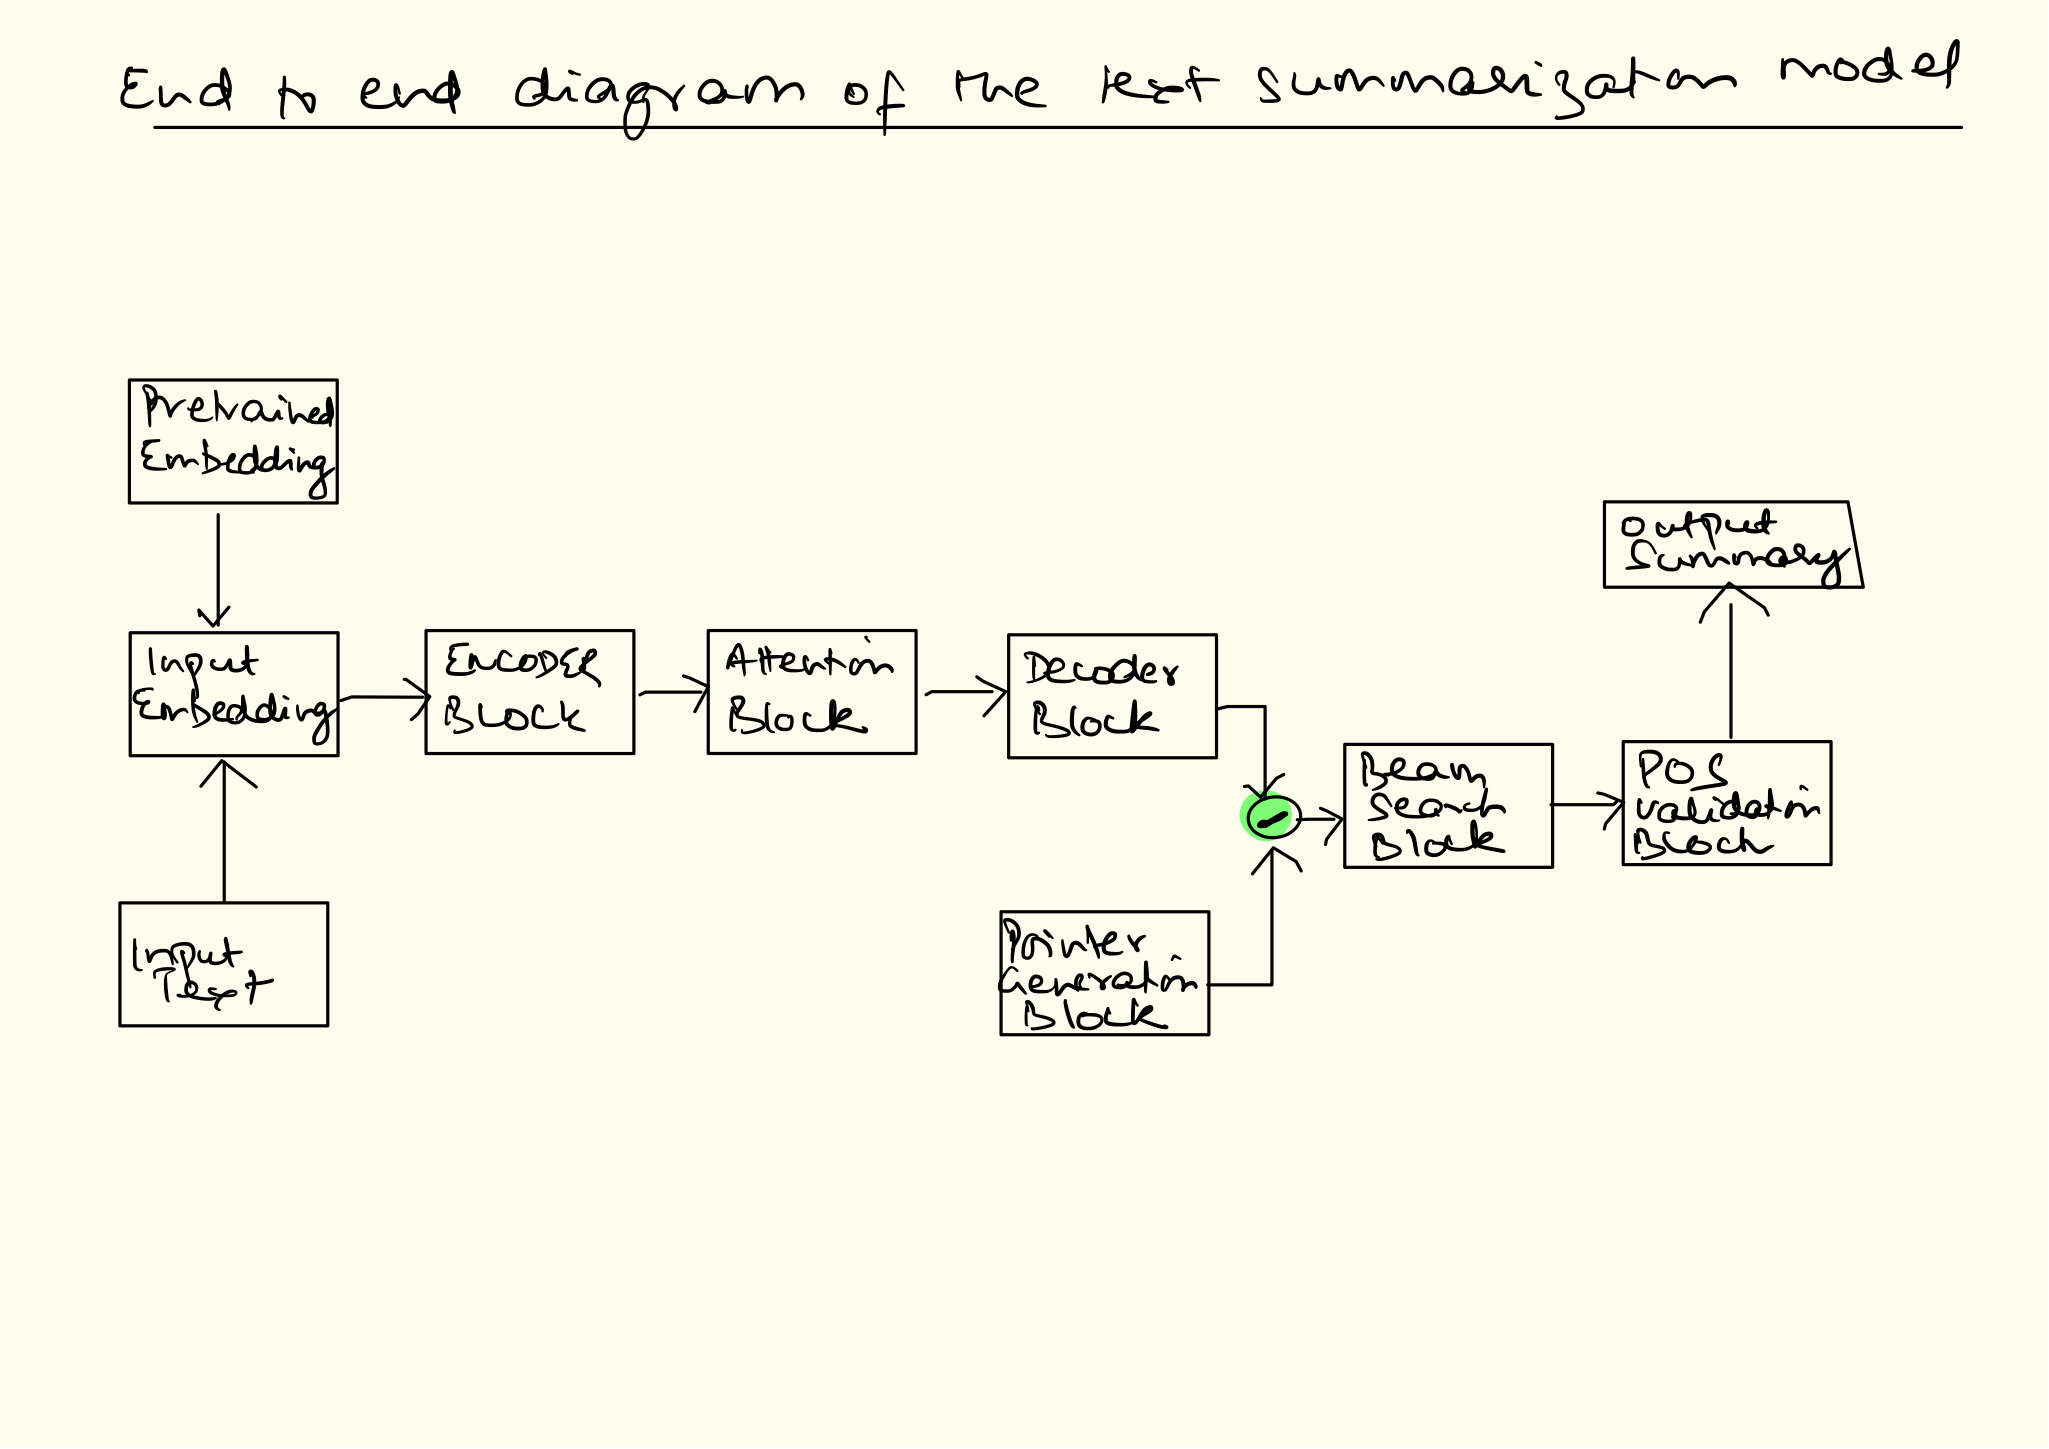 End to end diagram of the text summarization model
Pretrained
Embedding
Input
Embedding
Input
Text
ENCODER
BLOCK
Attention
Block
Decoder
Block
Pointer
Generation
Block
Beam
Search
Block
POS
validation
Block
Output
Summary